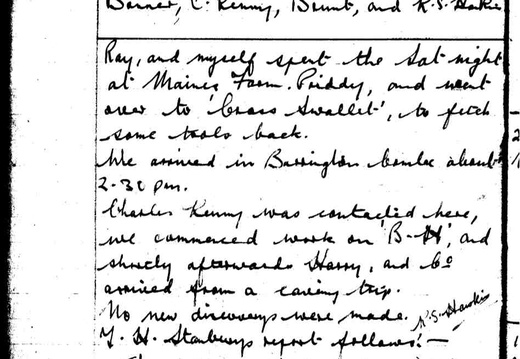 Barner, C. Kenny, Brunt, and R.S. Hawkins
Ray, and myself spent the Sat night
at Maines Farm. Priddy, and went
over to 'Cross Swallet', to fetch
some tools back.
We arrived in Burrington Combe about
2-30 pm.
Charles Kenny was contacted here,
we commenced work on 'B-H', and
shortly afterwards Harry, and Co
arrived from a caving trip.
No new discoverys were made.
T. H. Stanburys report follows:-